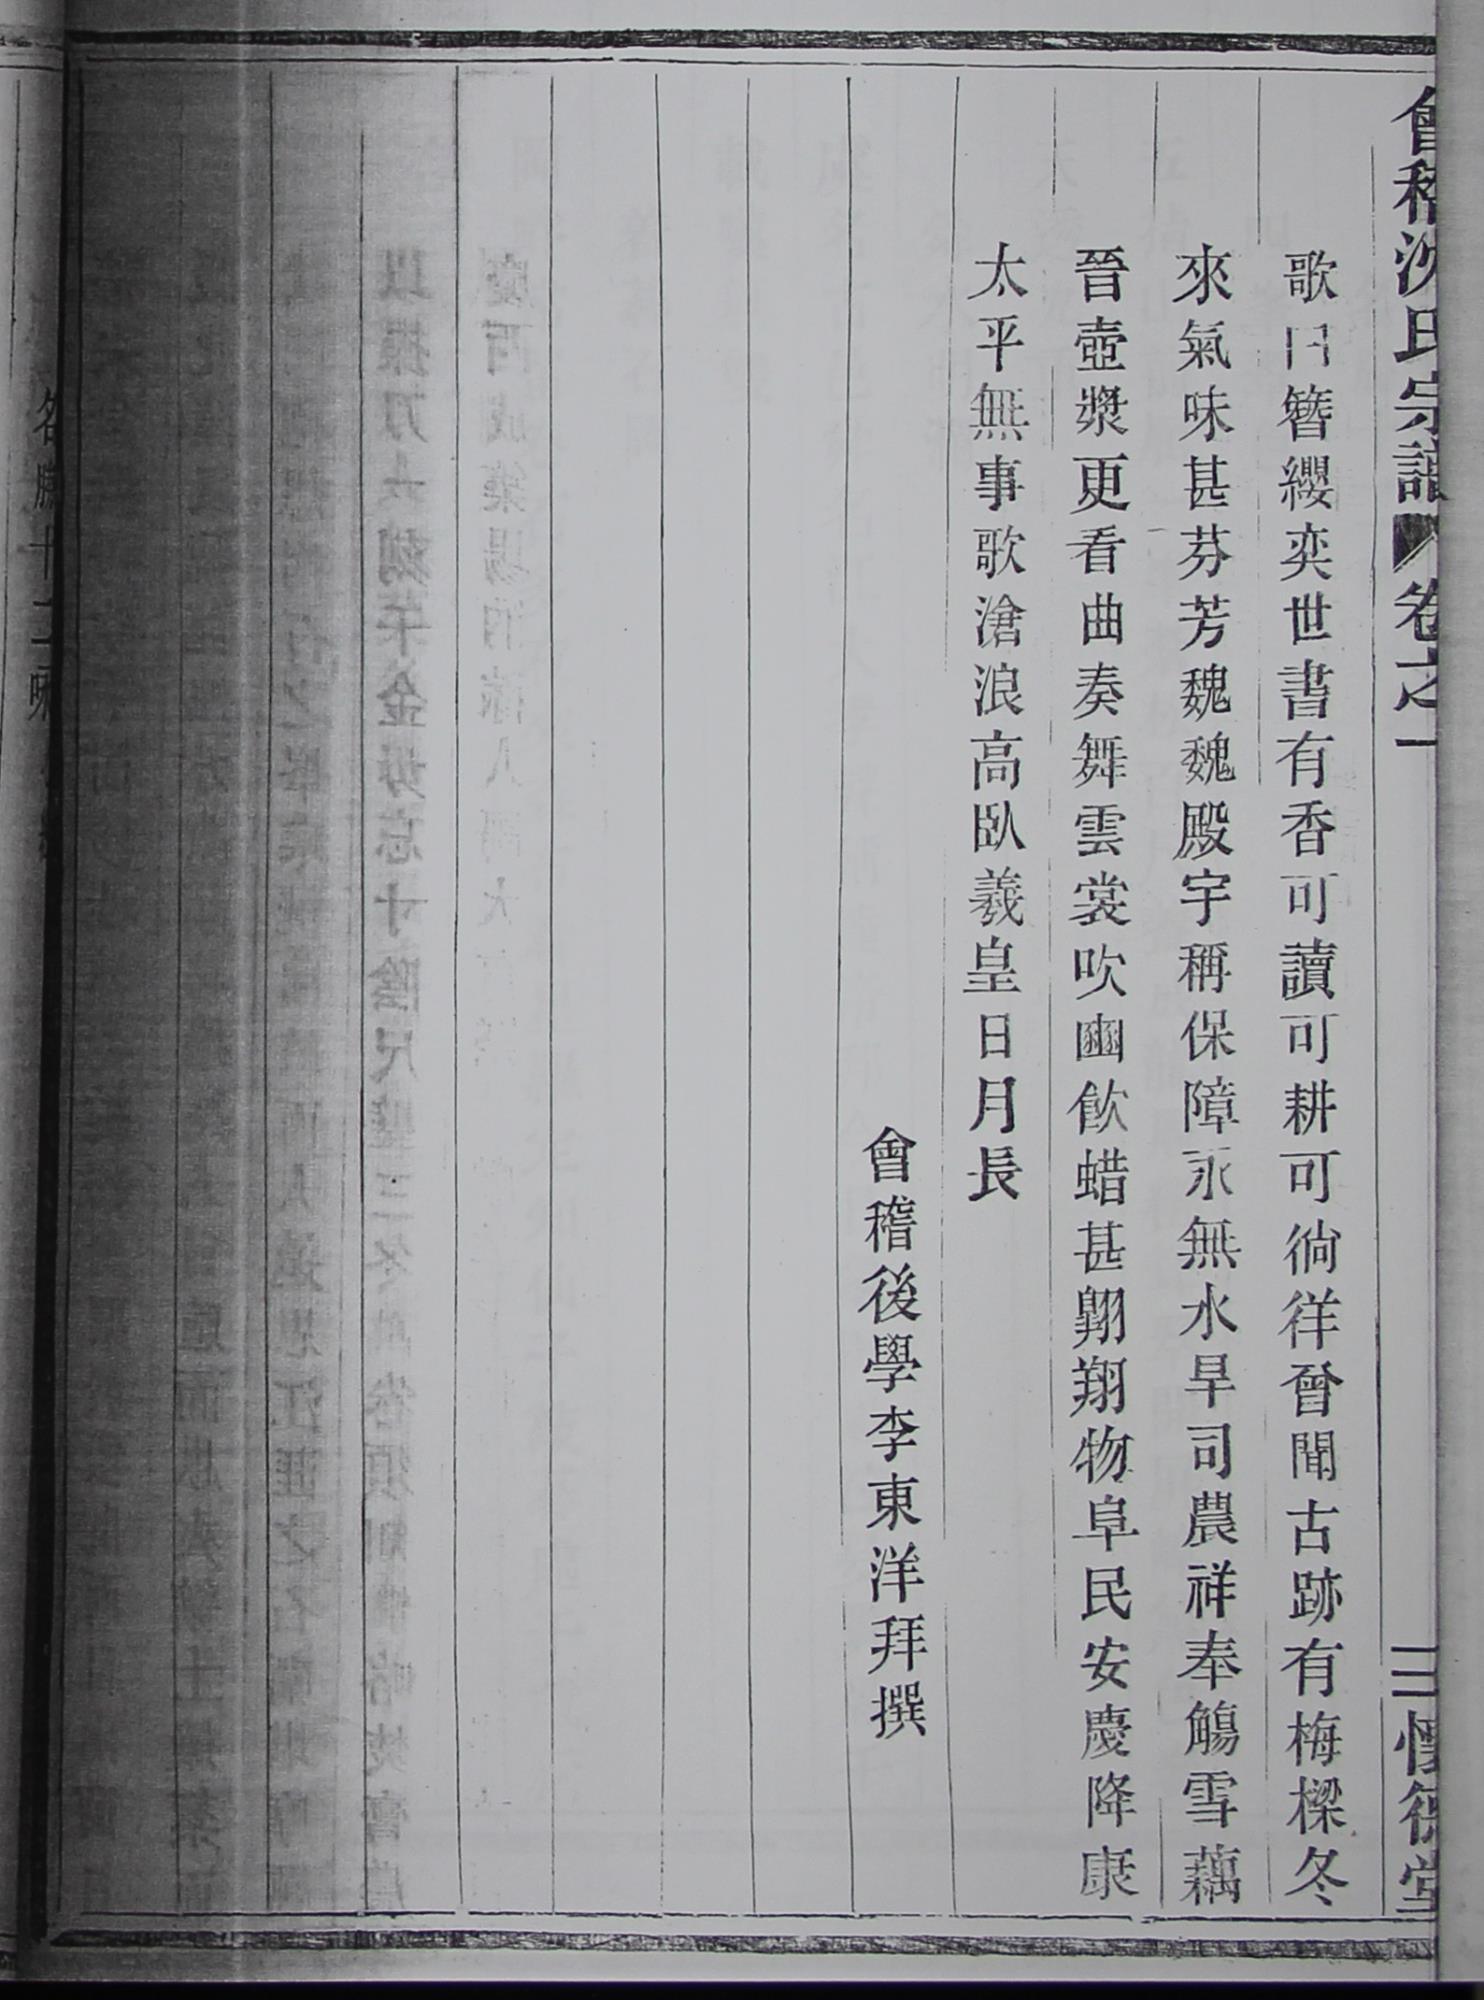 會稽沈氏宗譜 卷之一 三 懷德堂
歌曰簪纓奕世書有香可讀可耕可徜徉曾聞古跡有梅樑冬
來氣味甚芬芳魏魏殿宇稱保障永無水旱司農祥奉觴雪藕
晉壺漿更看曲奏舞雲裳吹豳飲蜡甚翺翔物阜民安慶降康
太平無事歌滄浪高臥羲皇日月長
會稽後學李東洋拜撰